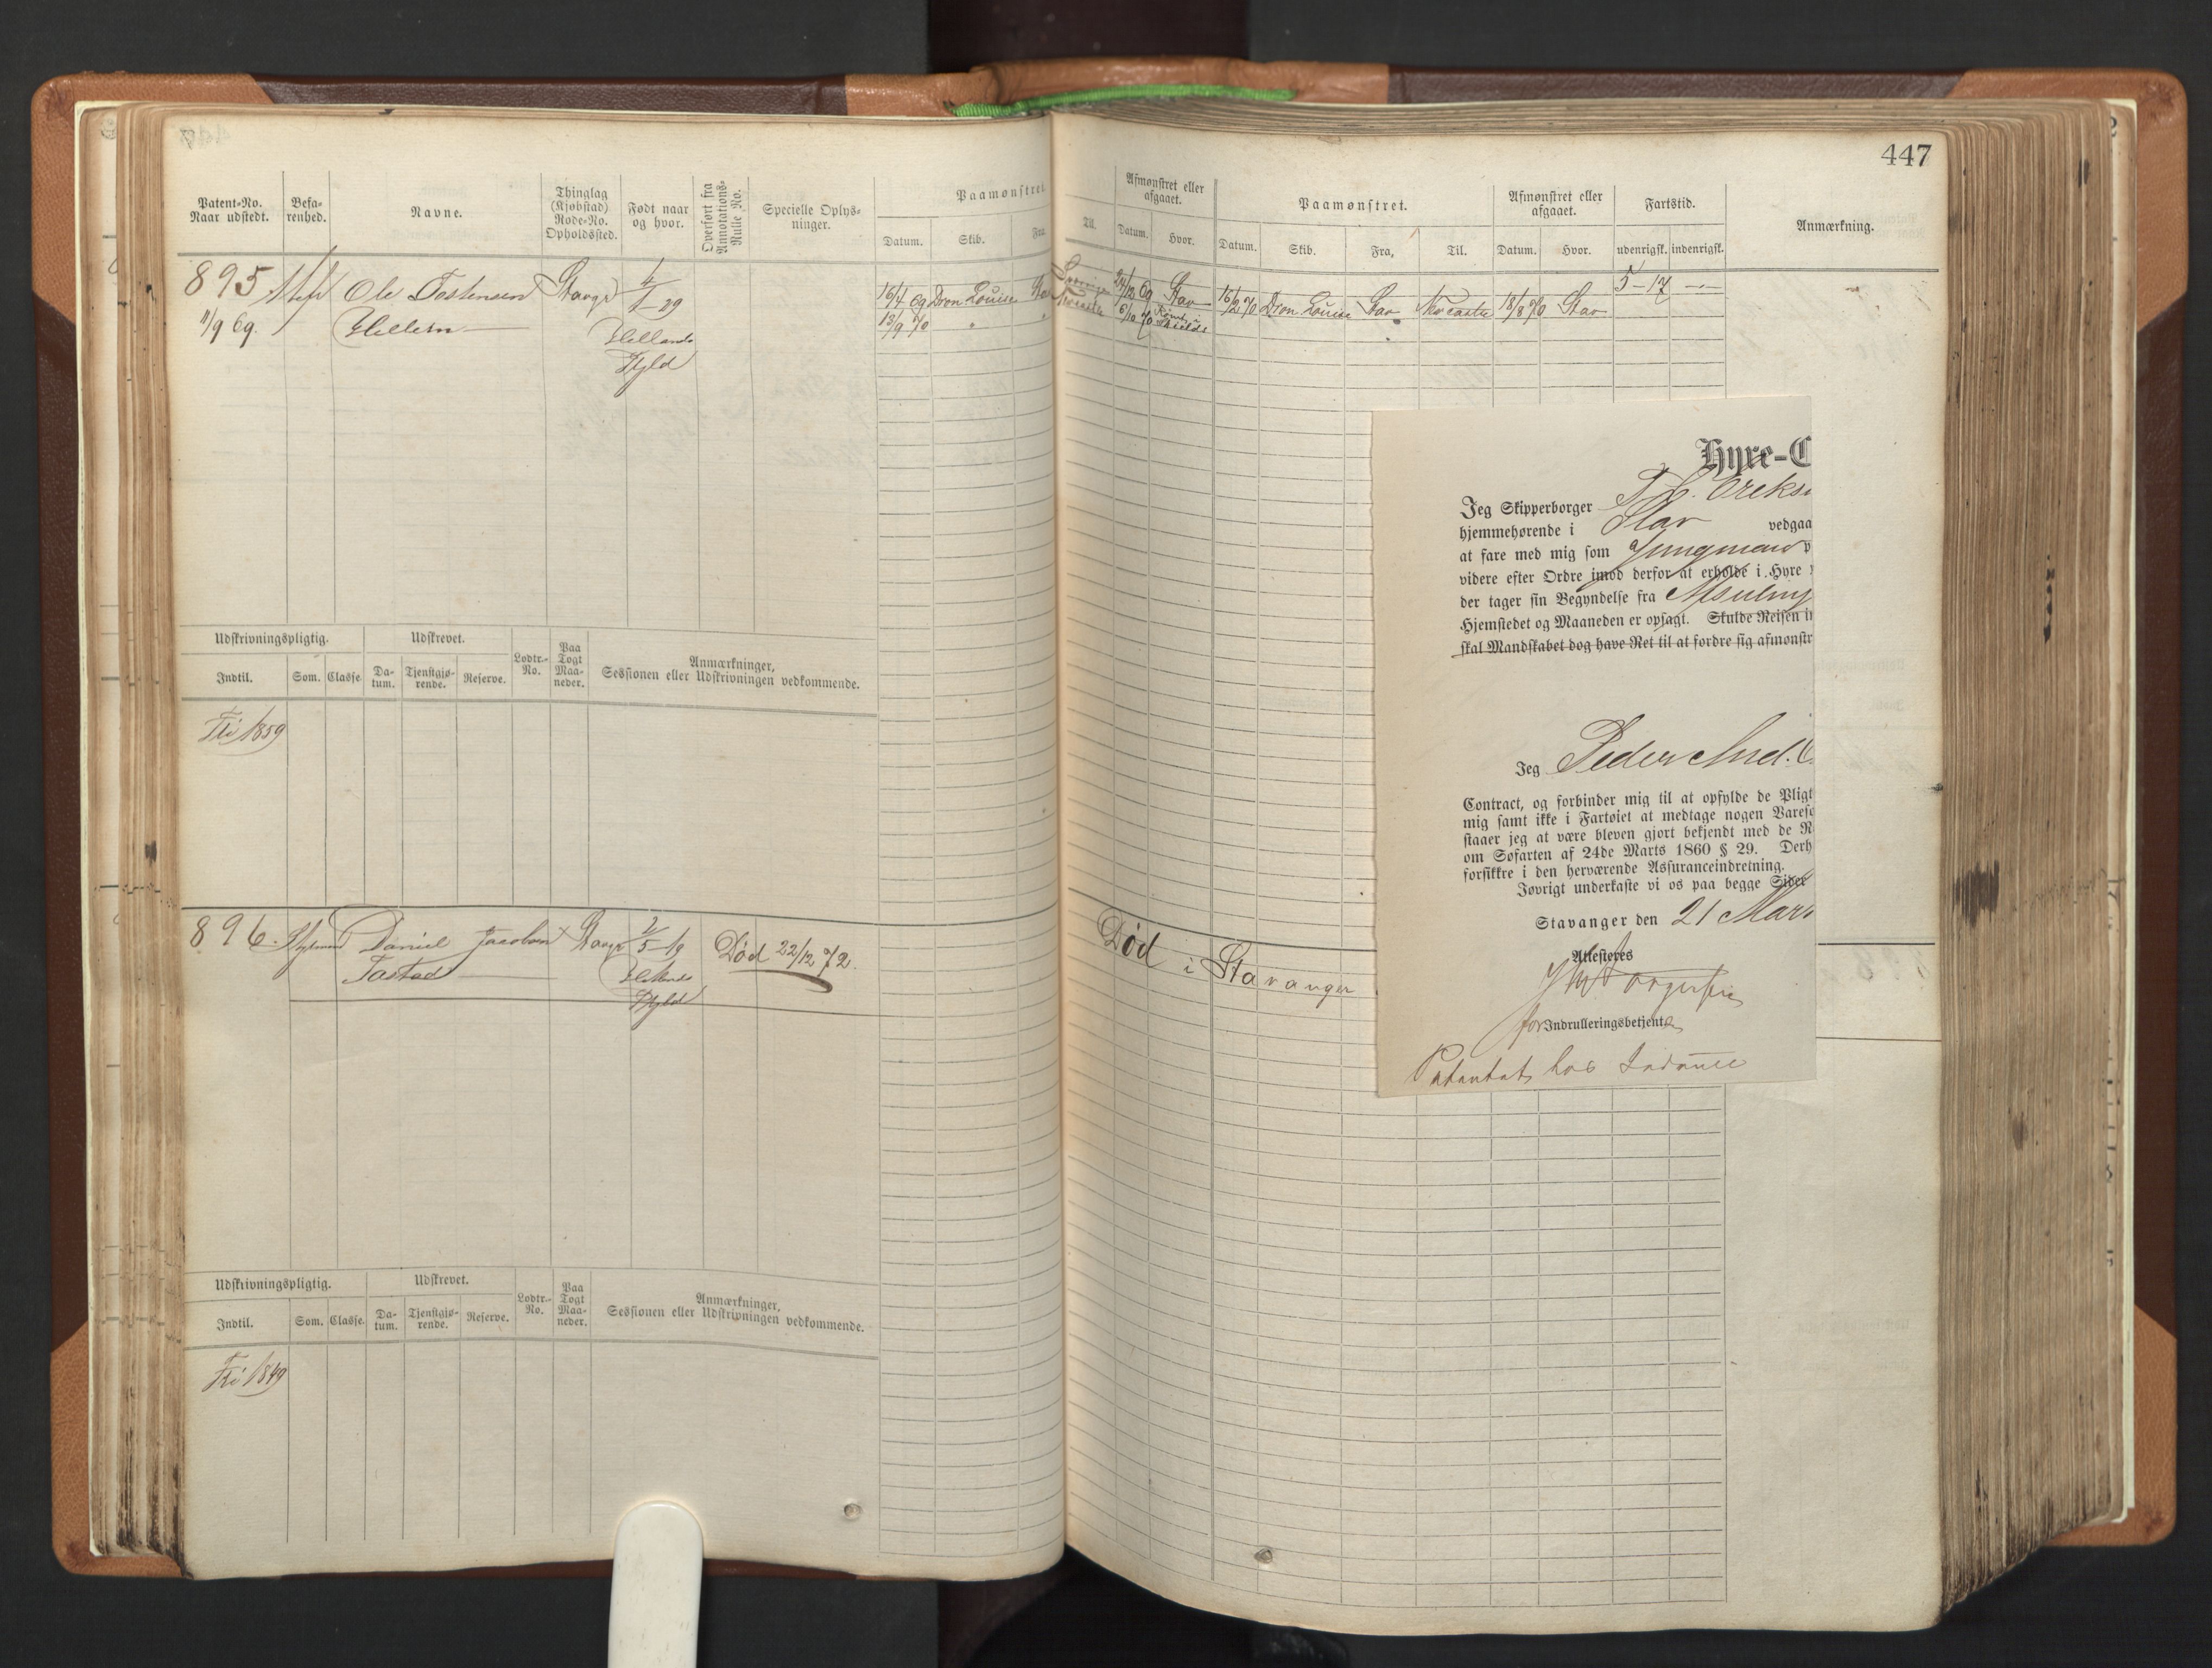 447
Patent-No. Naar udstedt.
Befarenhed.
Navne.
Thinglag (Kjøbstad) Rode-No. Opholdssted.
Født naar og hvor.
Overført fra Annotations-Rulle No.
Specielle Oplysninger.
Paamønstret.
Datum. Skib. Fra Til.
Afmønstret eller afgaaet.
Datum. Hvor.
Paamønstret.
Datum. Skib. Fra, Til.
Afmønstret eller afgaaet.
Datum. Hvor.
Fartstid.
udenrigsk. indenrigsk.
Anmærkning.
895 Ole Tostensen Stavgr
11/9 69.
Hellands
Hfld
16/4 69 Dron Louise Sta 24/12 69 Stav 16/2 70 Dron Louise Stav Newcastle 18/8 70 Stav 5-17
13/9 70 Newcastle 5/10 70 Rømt i Shields
Udskrivningspligtig.
Udskrevet.
Lodtr.-No.
Paa Togt Maaneder.
Anmærkninger,
Sessionen eller Udskrivningen vedkommende.
Indtil. Som. Classe. Datum. Tjenstgjørende. Reserve.
Fri 1859
896. Daniel Jacobsen Stavgr 2/5 19 Død 22/12 72. Død i Stavanger
Tastad
Hfld
Udskrivningspligtig.
Udskrevet.
Lodtr.-No.
Paa Togt Maaneder.
Anmærkninger,
Sessionen eller Udskrivningen vedkommende.
Indtil. Som. Classe. Datum. Tjenstgjørende. Reserve.
Fri 1849
Hyre-C
Jeg Skipperborger T. C. Ereks
hjemmehørende i Stav vedgaa
at fare med mig som Jungmand
videre efter Ordre imod derfor at erholde i Hyre
der tager sin Begyndelse fra
Hjemstedet og Maaneden er opsagt. Skulde Reisen i
skal Mandskabet dog have Ret til at fordre sig afmønstr
Jeg Peder And.
Contract, og forbinder mig til at opfylde de Pligt
mig samt ikke i Fartøiet at medtage nogen Vares
staaer jeg at være bleven gjort bekjendt med de R
om Søfarten af 24de Marts 1860 § 29. Derh
forsikkre i den herværende Assuranceindretning.
Iøvrigt underkaste vi os paa begge Sider
Stavanger den 21 Mar
Attesteres
for Indrulleringsbetjent
Patentet hos